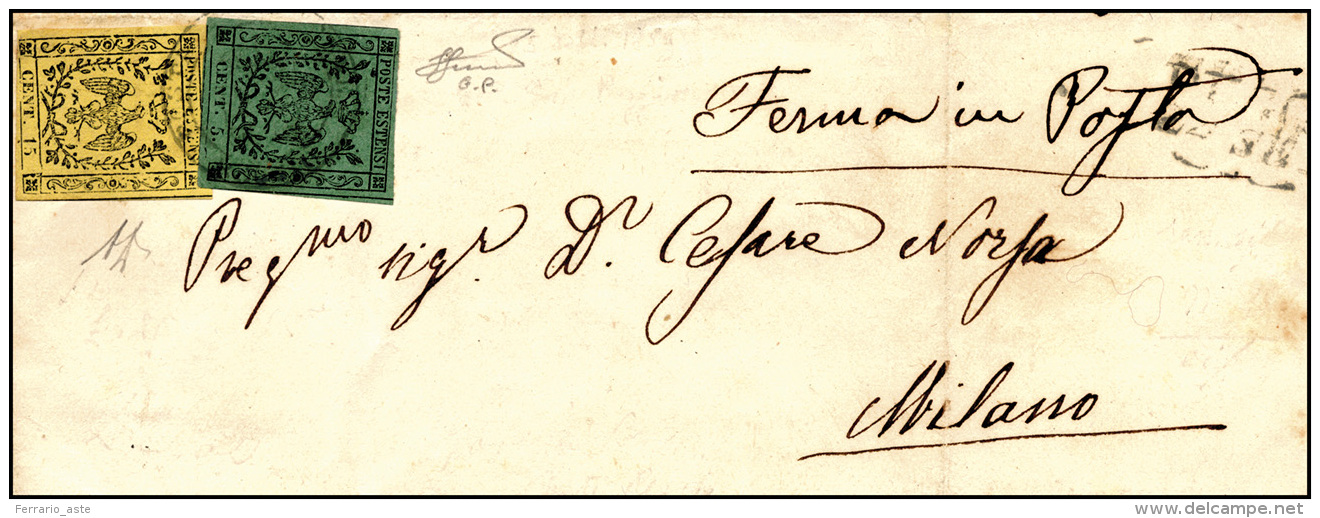 POSTE ESTENSI
CENT 15
POSTE ESTENSI
CENT. 5
G. P.
Ferma in Posta
Preg.mo sigr. Dr. Cesare Norsa
Milano
Ferrario_aste
www.delcampe.net